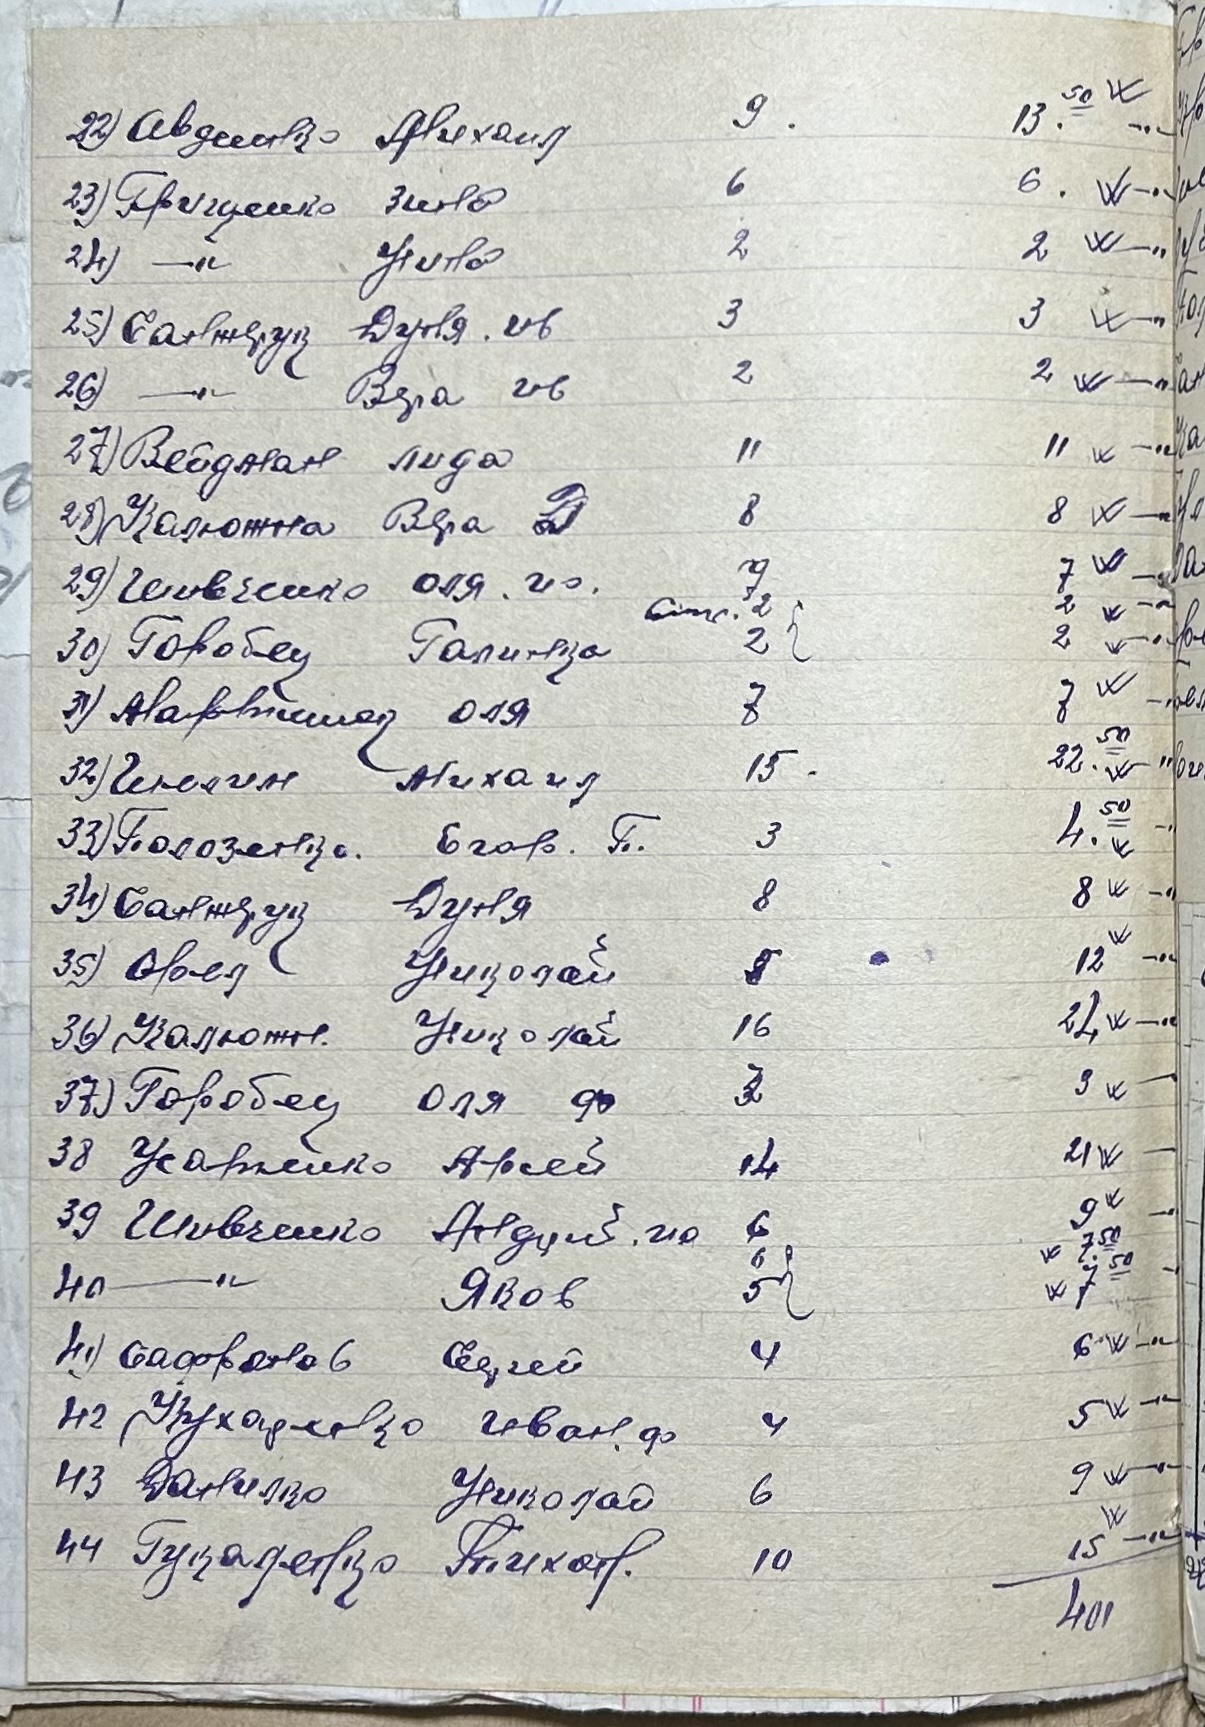 22) Авдиенко Михаил 9. 13.50
23) Грищенко Зина 6 6.
24) —"— Нина 2 2
25) Санжарук Дуня. ив 3 3
26) —"— Вера ив 2 2
27) Вейдман лида 11 11
28) Калюжна Вера 8 8
29) Шивченко оля. 7 7
2 2
30) Горобец Галинка 2 2
31) оля 7 7
32) Михаил 15. 22.50
33) Полозенко. Егор. П. 3 4.50
34) Санжарук Дуня 8 8
35) Орел Николай 8 12
36) Калюжн. Николай 16 24
37) Горобец оля ф 3
38 Арсей 14 21
39 Шивченко Андрий. 6 9
6 7.50
40 —"— Яков 5 7.50
41) Сафронов Сергей 4 6
42 Кухаренко иван. ф 4 5
43 Данилко Николай 6 9
44 Тихон. 10 15
401